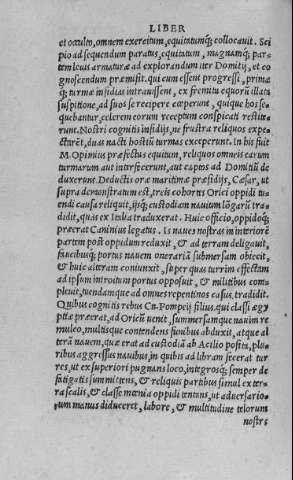 LIBER
et occulto, omnem exercitum, equitatumq́; collocauit. Sci
pio ad sequendum paratus, equitatum, magnamq́; par-
tem leuis armaturæ ad explorandum iter Domitij, et co
gnoscendum præmisit. qui cum essent progressi, primæ
q́; turmæ insidias intrauissent, ex fremitu equorū illata
suspitione, ad suos se recipere cœperunt, quiq́ue hos se-
quebantur, celerem eorum receptum conspicati restite-
runt. Nostri cognitis insidijs, ne frustra reliquos expe-
ctarēt, duas nacti hostiū turmas exceperunt. In his fuit
M. Opimius præfectus equitum, reliquos omneis earum
turmarum aut interfecerunt, aut captos ad Domitiū de
duxerunt. Deductis oræ maritimæ præsidijs, Cæsar, ut
supra demonstratum est, treis cohortes Orici oppidi tu-
endi causa reliquit, ijsq́; custodiam nauium lōgarū tra-
didit, quas ex Italia traduxerat. Huic officio, oppidoq́;
præerat Caninius legatus. Is naues nostras in interiorē
partem post oppidum reduxit, & ad terram deligauit,
faucibusq́; portus nauem onerariā submersam obiecit,
& huic alteram coniunxit, super quas turrim effectam
ad ipsum introitum portus opposuit, & militibus com-
pleuit, tuendamque ad omnes repentinos casus, tradidit.
Quibus cognitis rebus Cn. Pompeij filius, qui classi ægy
ptiæ præerat, ad Oricū uenit, summersamque nauim re
mulco, multisque contendens funibus abduxit, atque al
terā nauem, quæ erat ad custodiā ab Acilio posita, plu-
ribus aggressus nauibus, in quibus ad libram fecerat tur
res, ut ex superiori pugnans loco, integrosq́; semper de
fatigatis summittens, & reliquis partibus simul ex ter-
ra scalis, & classe mœnia oppidi tentans, ut aduersario-
rum manus diduceret, labore, & multitudine telorum
nostrs